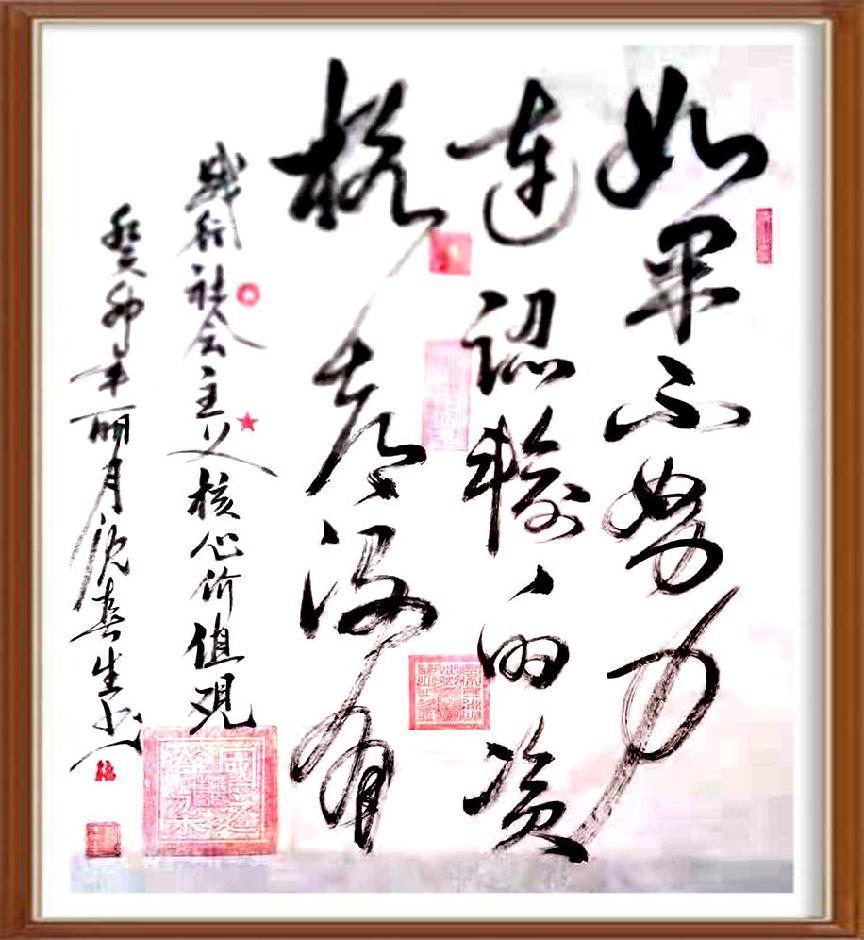 如果不努力
连认输的资
格都没有
践行社会主义核心价值观
癸卯年丽月沈喜生书